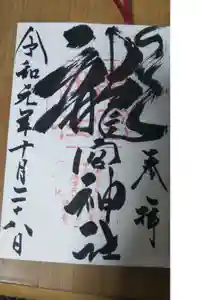 奉拝
龍宮神社
令和元年十月二十八日